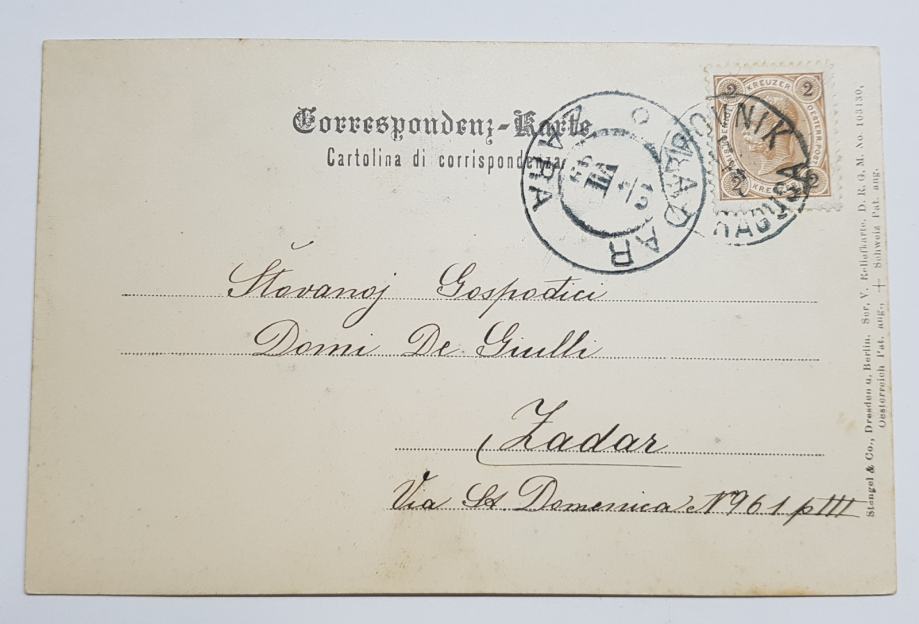 Correspondenz-Karte
Cartolina di corrispondenza
ZARA
ZADAR
2 KREUZER 2
OESTERR. POST
2 KREUZER 2
Štovanoj Gospođici
Domi De Giulli
Zadar
Via St Domenica No 961 p III
Stengel & Co., Dresden u. Berlin. Ser. V. Reliefkarte. D. R. G. M. No. 103130,
Oesterreich Pat. ang., + Schweiz Pat. ang.